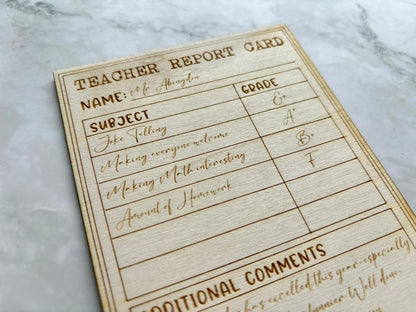 TEACHER REPORT CARD
NAME: Mr Abingdon
SUBJECT GRADE
Joke Telling C+
Making everyone welcome A+
Making Math interesting B+
Amount of Homework F
ADDITIONAL COMMENTS
has excelled this year-especially
funnier. Well done